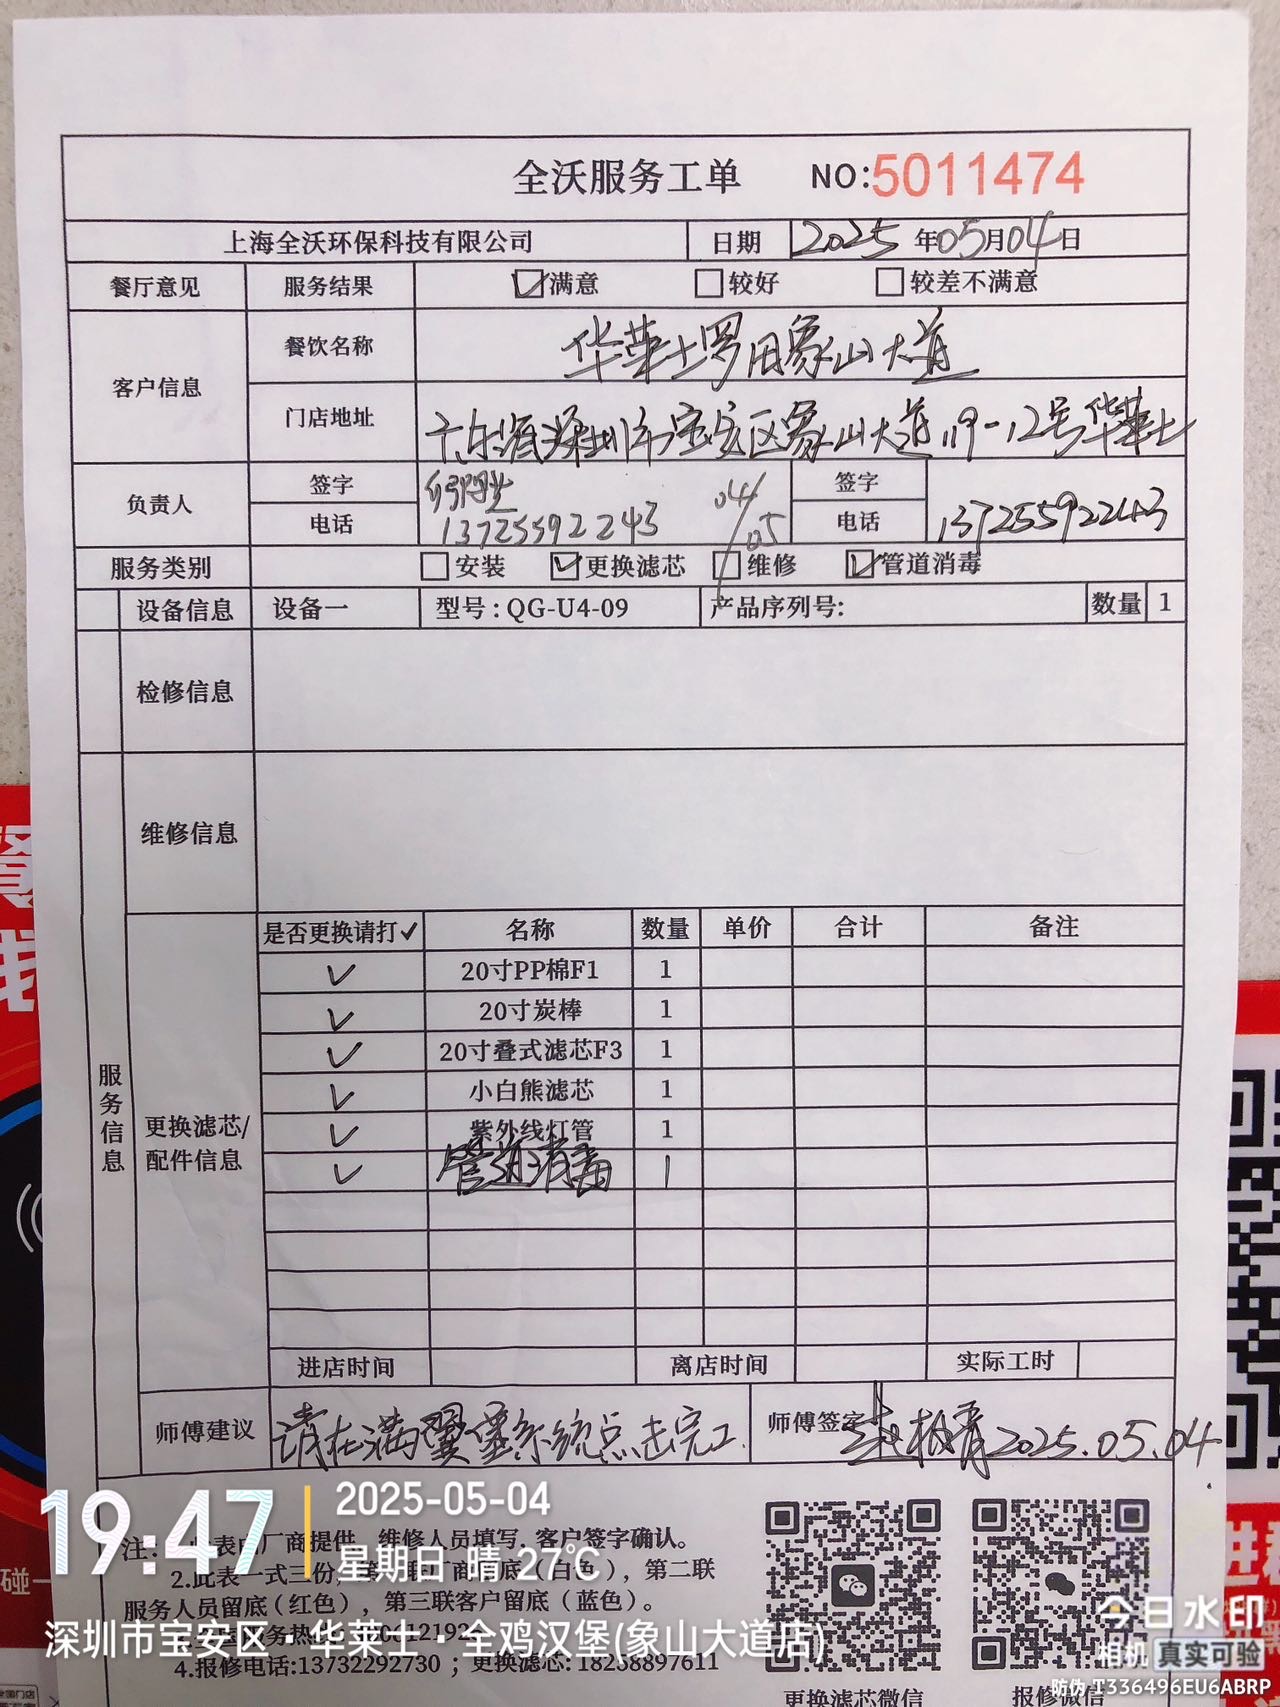 全沃服务工单 NO:5011474
上海全沃环保科技有限公司 日期 2025年05月04日
餐厅意见 服务结果 满意 较好 较差不满意
客户信息 餐饮名称 华莱士罗田象山大道
门店地址 广东省深圳市宝安区象山大道119-12号华莱士
负责人 签字 04/05 签字
电话 13725592243 电话 13725592243
服务类别 安装 更换滤芯 维修 管道消毒
设备信息 设备一 型号:QG-U4-09 产品序列号: 数量 1
检修信息
维修信息
服务信息
更换滤芯/配件信息
是否更换请打✓ 名称 数量 单价 合计 备注
✓ 20寸PP棉F1 1
✓ 20寸炭棒 1
✓ 20寸叠式滤芯F3 1
✓ 小白熊滤芯 1
✓ 紫外线灯管 1
✓ 管道消毒 1
进店时间 离店时间 实际工时
师傅建议 请在满翼僮系统点击完工. 师傅签字 2025.05.04
19:47 2025-05-04
星期日 晴 27℃
深圳市宝安区·华莱士·全鸡汉堡(象山大道店)
注: 表由厂商提供,维修人员填写,客户签字确认。
2.此表一式三份, (白色),第二联
服务人员留底(红色),第三联客户留底(蓝色)。
4.报修电话:13732292730 ;更换滤芯:18258897611
更换滤芯微信 报修微信
今日水印
相机 真实可验
防伪 T336496EU6ABRP